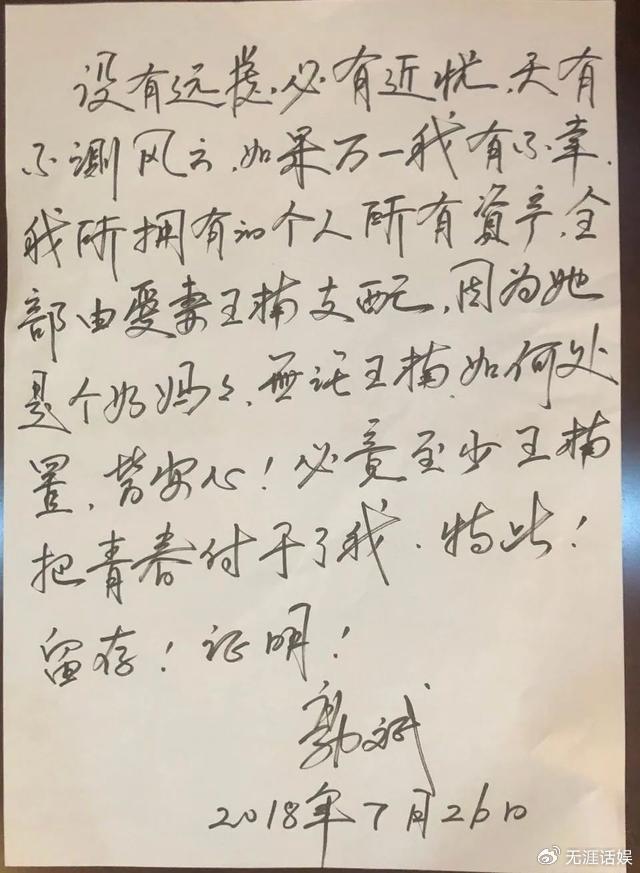 没有远虑必有近忧、天有
不测风云、如果万一我有不幸、
我所拥有的个人所有资产、全
部由爱妻王楠支配、因为她
是个好妈々、无论王楠、如何处
置、皆安心！必竟至少王楠
把青春付于了我、特此！
留存！证明！
郭斌
2018年7月26日
无涯话娱